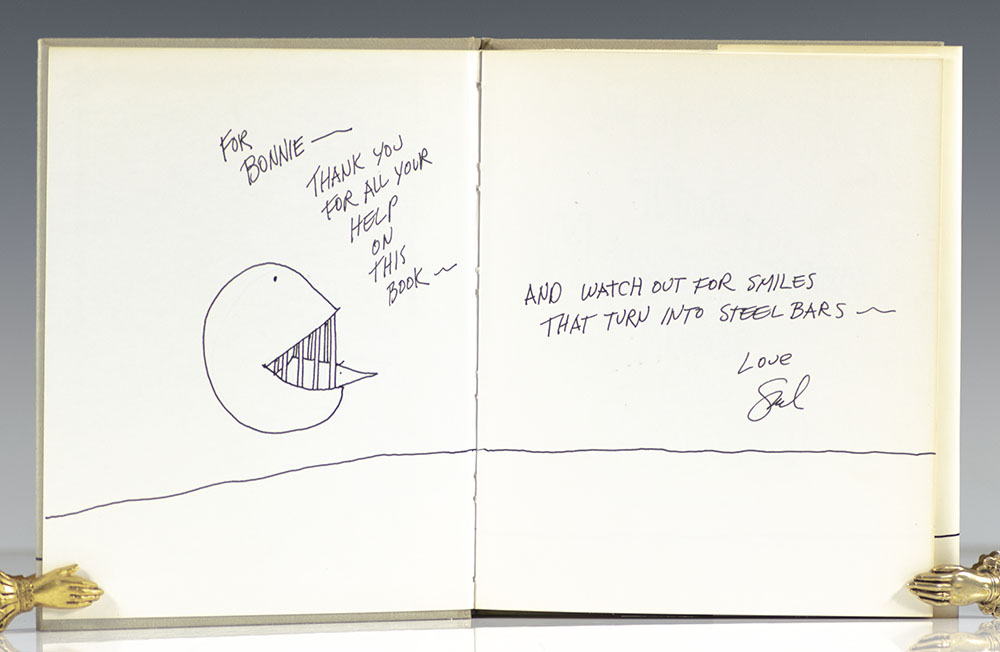 FOR
BONNIE —
THANK YOU
FOR ALL YOUR
HELP
ON
THIS
BOOK ~
AND WATCH OUT FOR SMILES
THAT TURN INTO STEEL BARS ~
LOVE